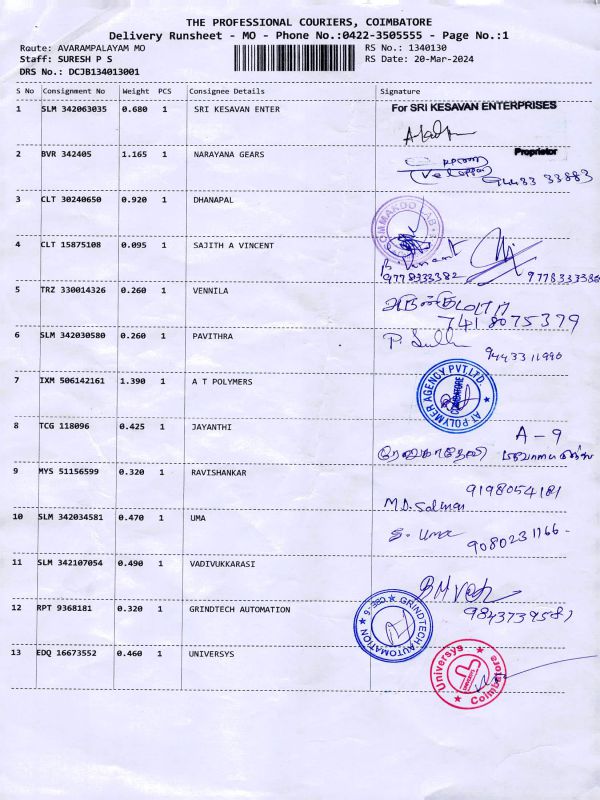 THE PROFESSIONAL COURIERS, COIMBATORE
Delivery Runsheet - MO - Phone No.:0422-3505555 - Page No.:1
Route: AVARAMPALAYAM MO RS No.: 1340130
Staff: SURESH P S RS Date: 20-Mar-2024
DRS No.: DCJB134013001
S No Consignment No Weight PCS Consignee Details Signature
1 SLM 342063035 0.680 1 SRI KESAVAN ENTER For SRI KESAVAN ENTERPRISES
Proprietor
2 BVR 342405 1.165 1 NARAYANA GEARS
94433 33883
3 CLT 30240650 0.920 1 DHANAPAL
4 CLT 15875108 0.095 1 SAJITH A VINCENT
9778333382
5 TRZ 330014326 0.260 1 VENNILA
7418075379
6 SLM 342030580 0.260 1 PAVITHRA
7 IXM 506142161 1.390 1 A T POLYMERS AT POLYMER AGENCY PVT.LTD.
8 TCG 118096 0.425 1 JAYANTHI A - 9
9 MYS 51156599 0.320 1 RAVISHANKAR 9198054181
M.D. Salman
10 SLM 342034581 0.470 1 UMA S. Uma 9080231166
11 SLM 342107054 0.490 1 VADIVUKKARASI
12 RPT 9368181 0.320 1 GRINDTECH AUTOMATION GRINDTECH AUTOMATION
13 EDQ 16673552 0.460 1 UNIVERSYS Universys Coimbatore